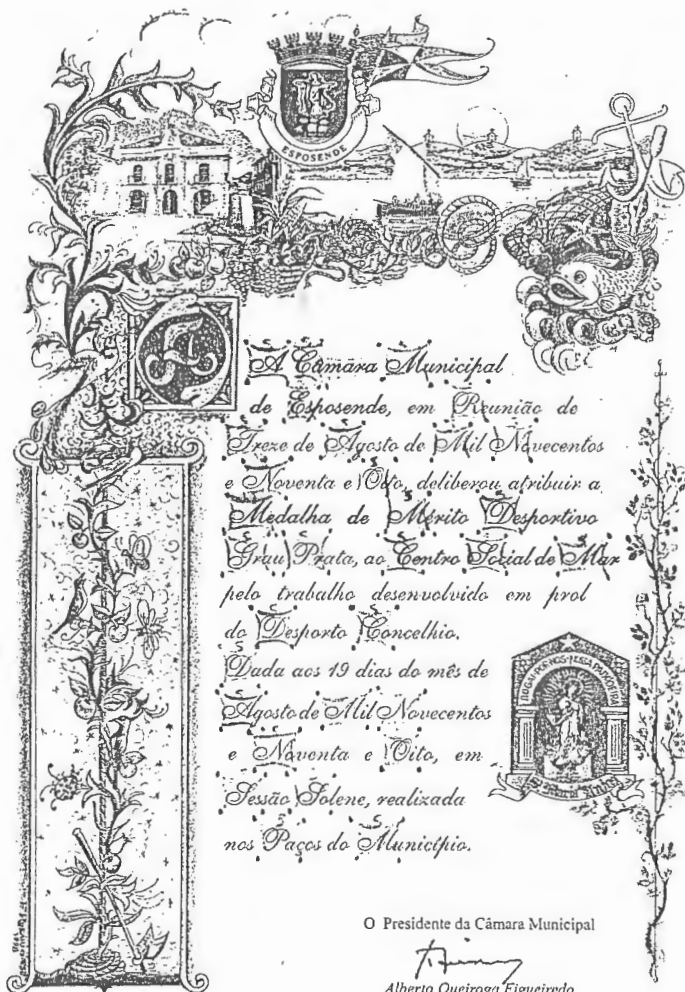 ESPOSENDE
A Câmara Municipal
de Esposende, em Reunião de
Treze de Agosto de Mil Novecentos
e Noventa e Oito, deliberou atribuir a
Medalha de Mérito Desportivo
Grau Prata, ao Centro Social de Mar
pelo trabalho desenvolvido em prol
do Desporto Concelhio.
Dada aos 19 dias do mês de
Agosto de Mil Novecentos
e Noventa e Oito, em
Sessão Solene, realizada
nos Paços do Município.
S. Maria
O Presidente da Câmara Municipal
Alberto Queiroga Figueiredo